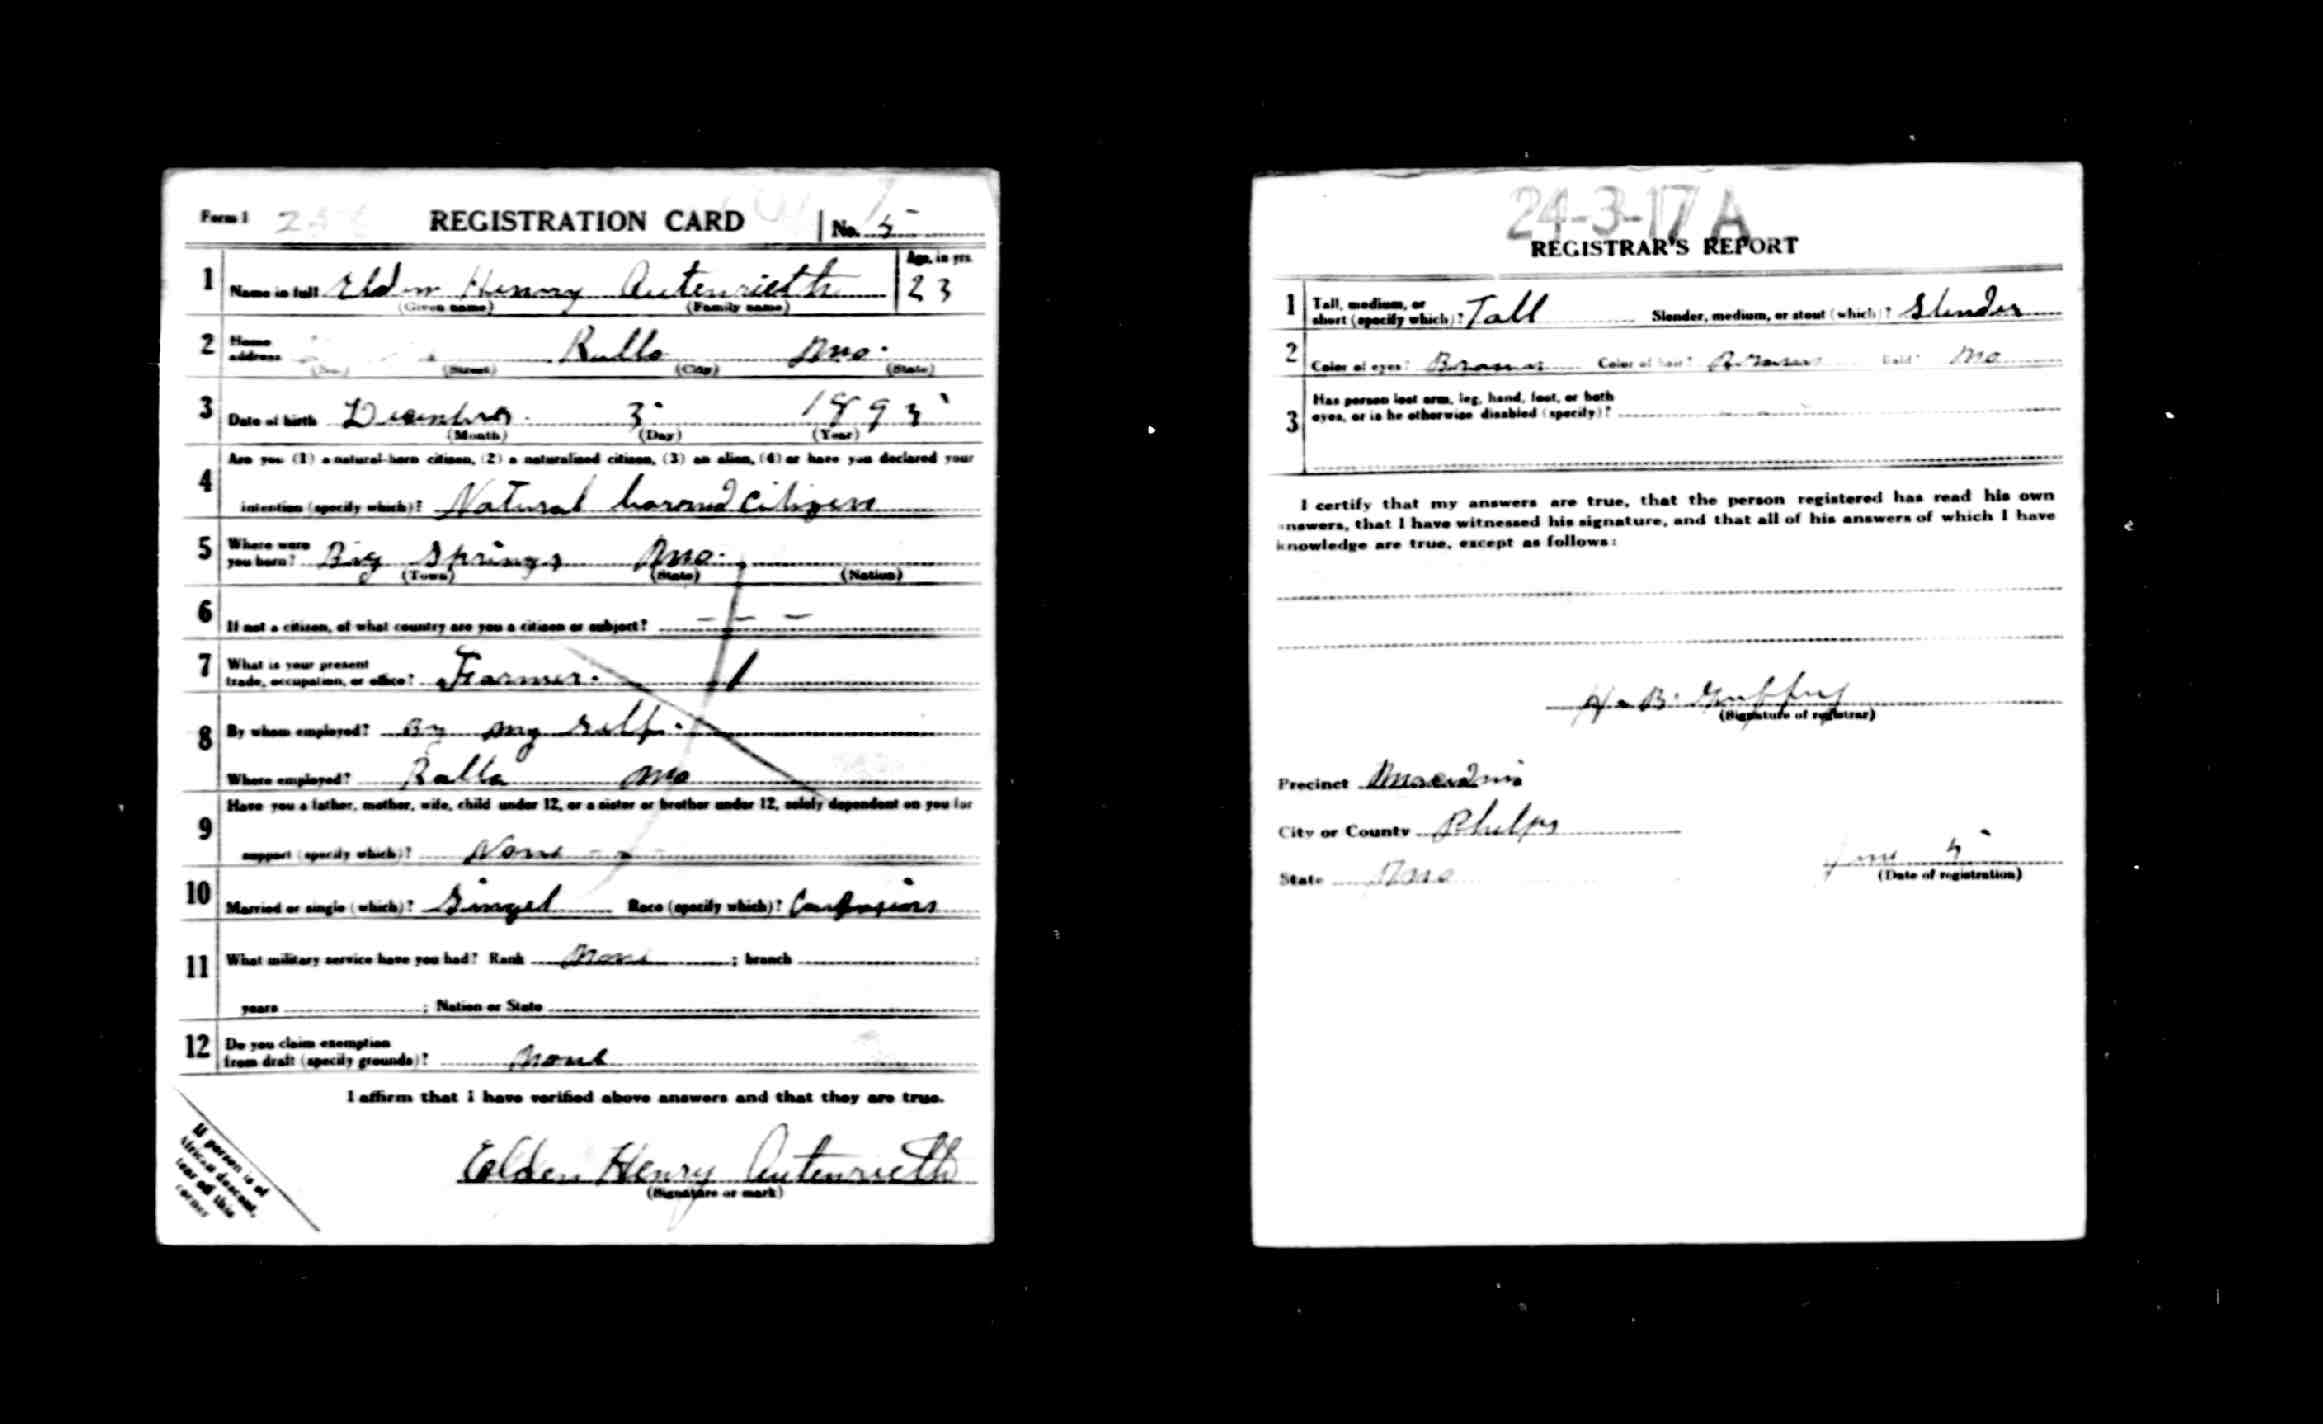 Form 1 REGISTRATION CARD No. 5
1 Name in full Elden Henry Autenrieth Age, in yrs. 23
(Given name) (Family name)
2 Home address Rulla Mo.
(No.) (Street) (City) (State)
3 Date of birth December 3 1893
(Month) (Day) (Year)
4 Are you (1) a natural-born citizen, (2) a naturalized citizen, (3) an alien, (4) or have you declared your
intention (specify which)? Natural borned Citizen
5 Where were you born? Big Springs Mo.
(Town) (State) (Nation)
6 If not a citizen, of what country are you a citizen or subject? - - -
7 What is your present trade, occupation, or office? Farmer.
8 By whom employed? By my self.
Where employed? Ralla Mo
9 Have you a father, mother, wife, child under 12, or a sister or brother under 12, solely dependent on you for
support (specify which)? None - - -
10 Married or single (which)? Singel Race (specify which)?
11 What military service have you had? Rank None ; branch ;
years ; Nation or State
12 Do you claim exemption from draft (specify grounds)? None
I affirm that I have verified above answers and that they are true.
Elden Henry Autenrieth
(Signature or mark)
If person is of
African descent,
tear off this
corner
24-3-17 A
REGISTRAR'S REPORT
1 Tall, medium, or short (specify which)? Tall Slender, medium, or stout (which)? Slender
2 Color of eyes? Brown Color of hair? Brown Bald? No
3 Has person lost arm, leg, hand, foot, or both
eyes, or is he otherwise disabled (specify)?
I certify that my answers are true, that the person registered has read his own
answers, that I have witnessed his signature, and that all of his answers of which I have
knowledge are true, except as follows:
H. B.
(Signature of registrar)
Precinct
City or County Phelps
State Mo
June 5
(Date of registration)